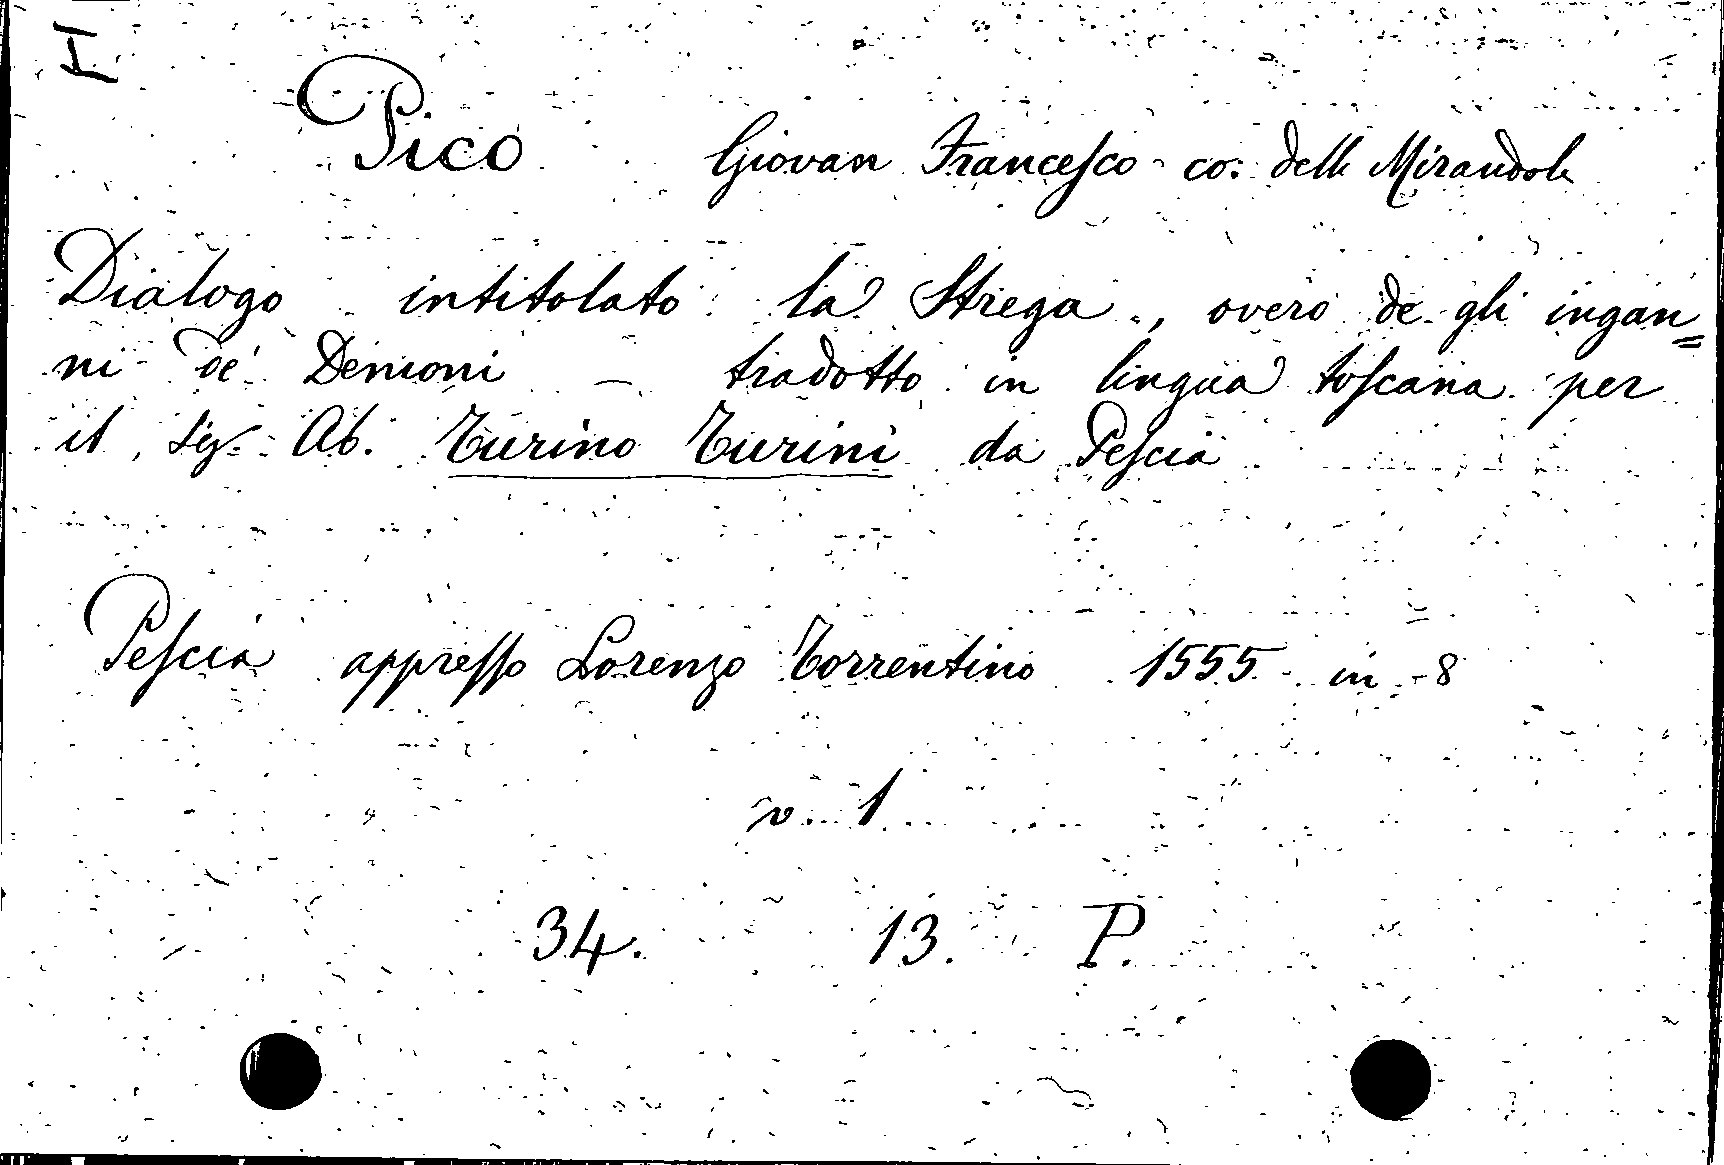 I
Pico Giovan Francesco - co. della Mirandola
Dialogo intitolato la Strega, overo de gli ingan=
ni de' Demoni – tradotto in lingua toscana per
il Sig. Ab. Turino Turini da Pescia
Pescia appresso Lorenzo Torrentino 1555 in-8
v. 1
34. 13. P.